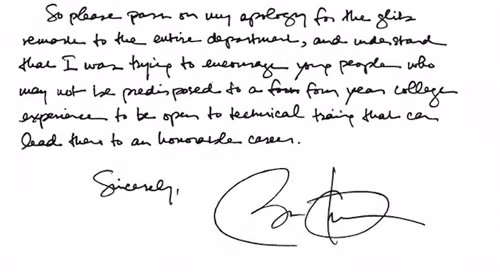 So please pass on my apology for the glib
remark to the entire department, and understand
that I was trying to encourage young people who
may not be predisposed to a form four year college
experience to be open to technical training that can
lead them to an honorable career.
Sincerely,